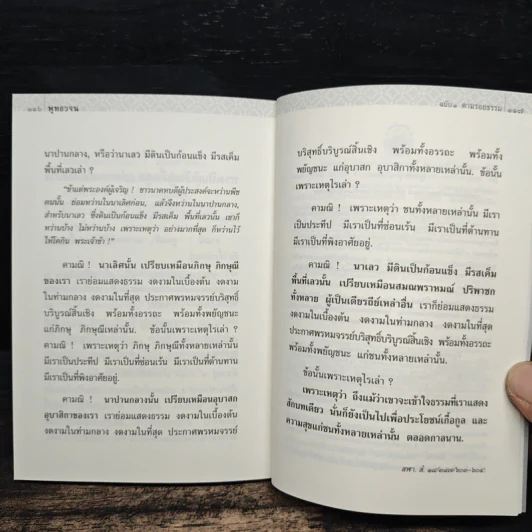 ๑๑๖ พุทธวจน
นาปานกลาง, หรือว่านาเลว มีดินเป็นก้อนแข็ง มีรสเค็ม
พื้นที่เลวเล่า ?
"ข้าแต่พระองค์ผู้เจริญ ! ชาวนาคหบดีผู้ประสงค์จะหว่านพืช
คนนั้น ย่อมหว่านในนาเลิศก่อน, แล้วจึงหว่านในนาปานกลาง,
สำหรับนาเลว ซึ่งดินเป็นก้อนแข็ง มีรสเค็ม พื้นที่เลวนั้น เขาก็
หว่านบ้าง ไม่หว่านบ้าง เพราะเหตุว่า อย่างมากที่สุด ก็หว่านไว้
ให้โคกิน พระเจ้าข้า !"
คามณิ ! นาเลิศนั้น เปรียบเหมือนภิกษุ ภิกษุณี
ของเรา เราย่อมแสดงธรรม งดงามในเบื้องต้น งดงาม
ในท่ามกลาง งดงามในที่สุด ประกาศพรหมจรรย์บริสุทธิ์
บริบูรณ์สิ้นเชิง พร้อมทั้งอรรถะ พร้อมทั้งพยัญชนะ
แก่ภิกษุ ภิกษุณีเหล่านั้น. ข้อนั้นเพราะเหตุไรเล่า ?
คามณิ ! เพราะเหตุว่า ภิกษุ ภิกษุณีทั้งหลายเหล่านั้น
มีเราเป็นประทีป มีเราเป็นที่ซ่อนเร้น มีเราเป็นที่ต้านทาน
มีเราเป็นที่พึ่งอาศัยอยู่.
คามณิ ! นาปานกลางนั้น เปรียบเหมือนอุบาสก
อุบาสิกาของเรา เราย่อมแสดงธรรม งดงามในเบื้องต้น
งดงามในท่ามกลาง งดงามในที่สุด ประกาศพรหมจรรย์
ฉบับ๑ ตามรอยธรรม ๑๑๗
บริสุทธิ์บริบูรณ์สิ้นเชิง พร้อมทั้งอรรถะ พร้อมทั้ง
พยัญชนะ แก่อุบาสก อุบาสิกาทั้งหลายเหล่านั้น. ข้อนั้น
เพราะเหตุไรเล่า ?
คามณิ ! เพราะเหตุว่า ชนทั้งหลายเหล่านั้น มีเรา
เป็นประทีป มีเราเป็นที่ซ่อนเร้น มีเราเป็นที่ต้านทาน
มีเราเป็นที่พึ่งอาศัยอยู่.
คามณิ ! นาเลว มีดินเป็นก้อนแข็ง มีรสเค็ม
พื้นที่เลวนั้น เปรียบเหมือนสมณพราหมณ์ ปริพาชก
ทั้งหลาย ผู้เป็นเดียรถีย์เหล่าอื่น เราก็ย่อมแสดงธรรม
งดงามในเบื้องต้น งดงามในท่ามกลาง งดงามในที่สุด
ประกาศพรหมจรรย์บริสุทธิ์บริบูรณ์สิ้นเชิง พร้อมทั้งอรรถะ
พร้อมทั้งพยัญชนะ แก่ชนทั้งหลายเหล่านั้น.
ข้อนั้นเพราะเหตุไรเล่า ?
เพราะเหตุว่า ถึงแม้ว่าเขาจะเข้าใจธรรมที่เราแสดง
สักบทเดียว นั่นก็ยังเป็นไปเพื่อประโยชน์เกื้อกูล และ
ความสุขแก่ชนทั้งหลายเหล่านั้น ตลอดกาลนาน.
สฬา. สํ. ๑๘/๓๘๗/๖๐๓-๖๐๔.